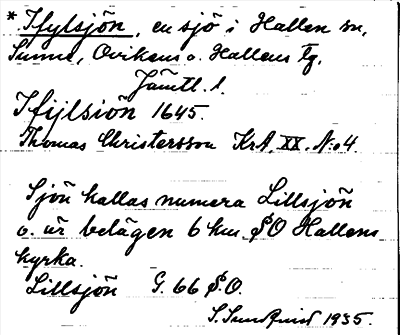 * Ifylsjön, en sjö i Hallen sn,
Sunne, Ovikens o. Hallens tg,
Jämtl. l.
Ifijlsiön 1645.
Thomas Christersson KrA, XX, No 4.
Sjön kallas numera Lillsjön
o. är belägen 6 km. SO Hallens
kyrka.
Lillsjön G. 66 S.O.
S. Sundquist 1935.